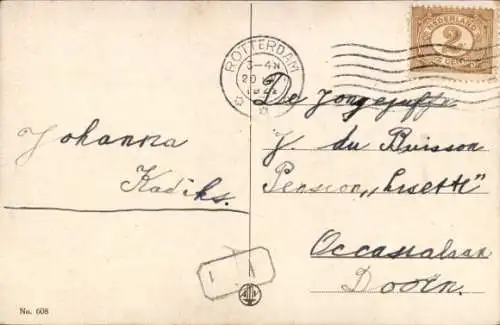 ROTTERDAM
3-4N
20
NEDERLAND
2
CENT
De Jongejuffr
J. du Buisson
Pension „Lisette"
Doorn.
Johanna
Kadiks.
1
No. 608